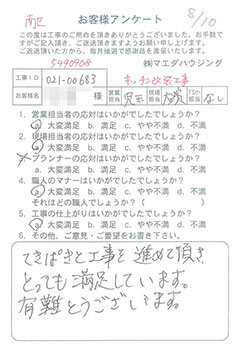 南区
お客様アンケート
8/10
この度は工事のご用命を頂きありがとうございました。お手数で
すがご記入頂き、ご返送頂きますようお願い申し上げます。
ご返送頂いた方から、毎月抽選で感謝品を進呈いたします。
5490908
㈱マエダハウジング
工事ID 021-00683 キッチン改装工事
お客様名 様 営業担当 児玉 現場担当 なし
1. 営業担当者の応対はいかがでしたでしょうか?
a 大変満足 b. 満足 c. やや不満 d. 不満
2. 現場担当者の応対はいかがでしたでしょうか?
a 大変満足 b. 満足 c. やや不満 d. 不満
3. プランナーの応対はいかがでしたでしょうか?
a. 大変満足 b. 満足 c. やや不満 d. 不満
4. 職人のマナーはいかがでしたでしょうか?
a 大変満足 b. 満足 c. やや不満 d. 不満
それはどの職人でしょうか?( )
5. 工事の仕上がりはいかがでしたでしょうか?
a 大変満足 b. 満足 c. やや不満 d. 不満
6. その他、ご意見・ご要望をお書き下さい。
てきぱきと工事を進めて頂き
とっても満足しています。
有難とうございます。